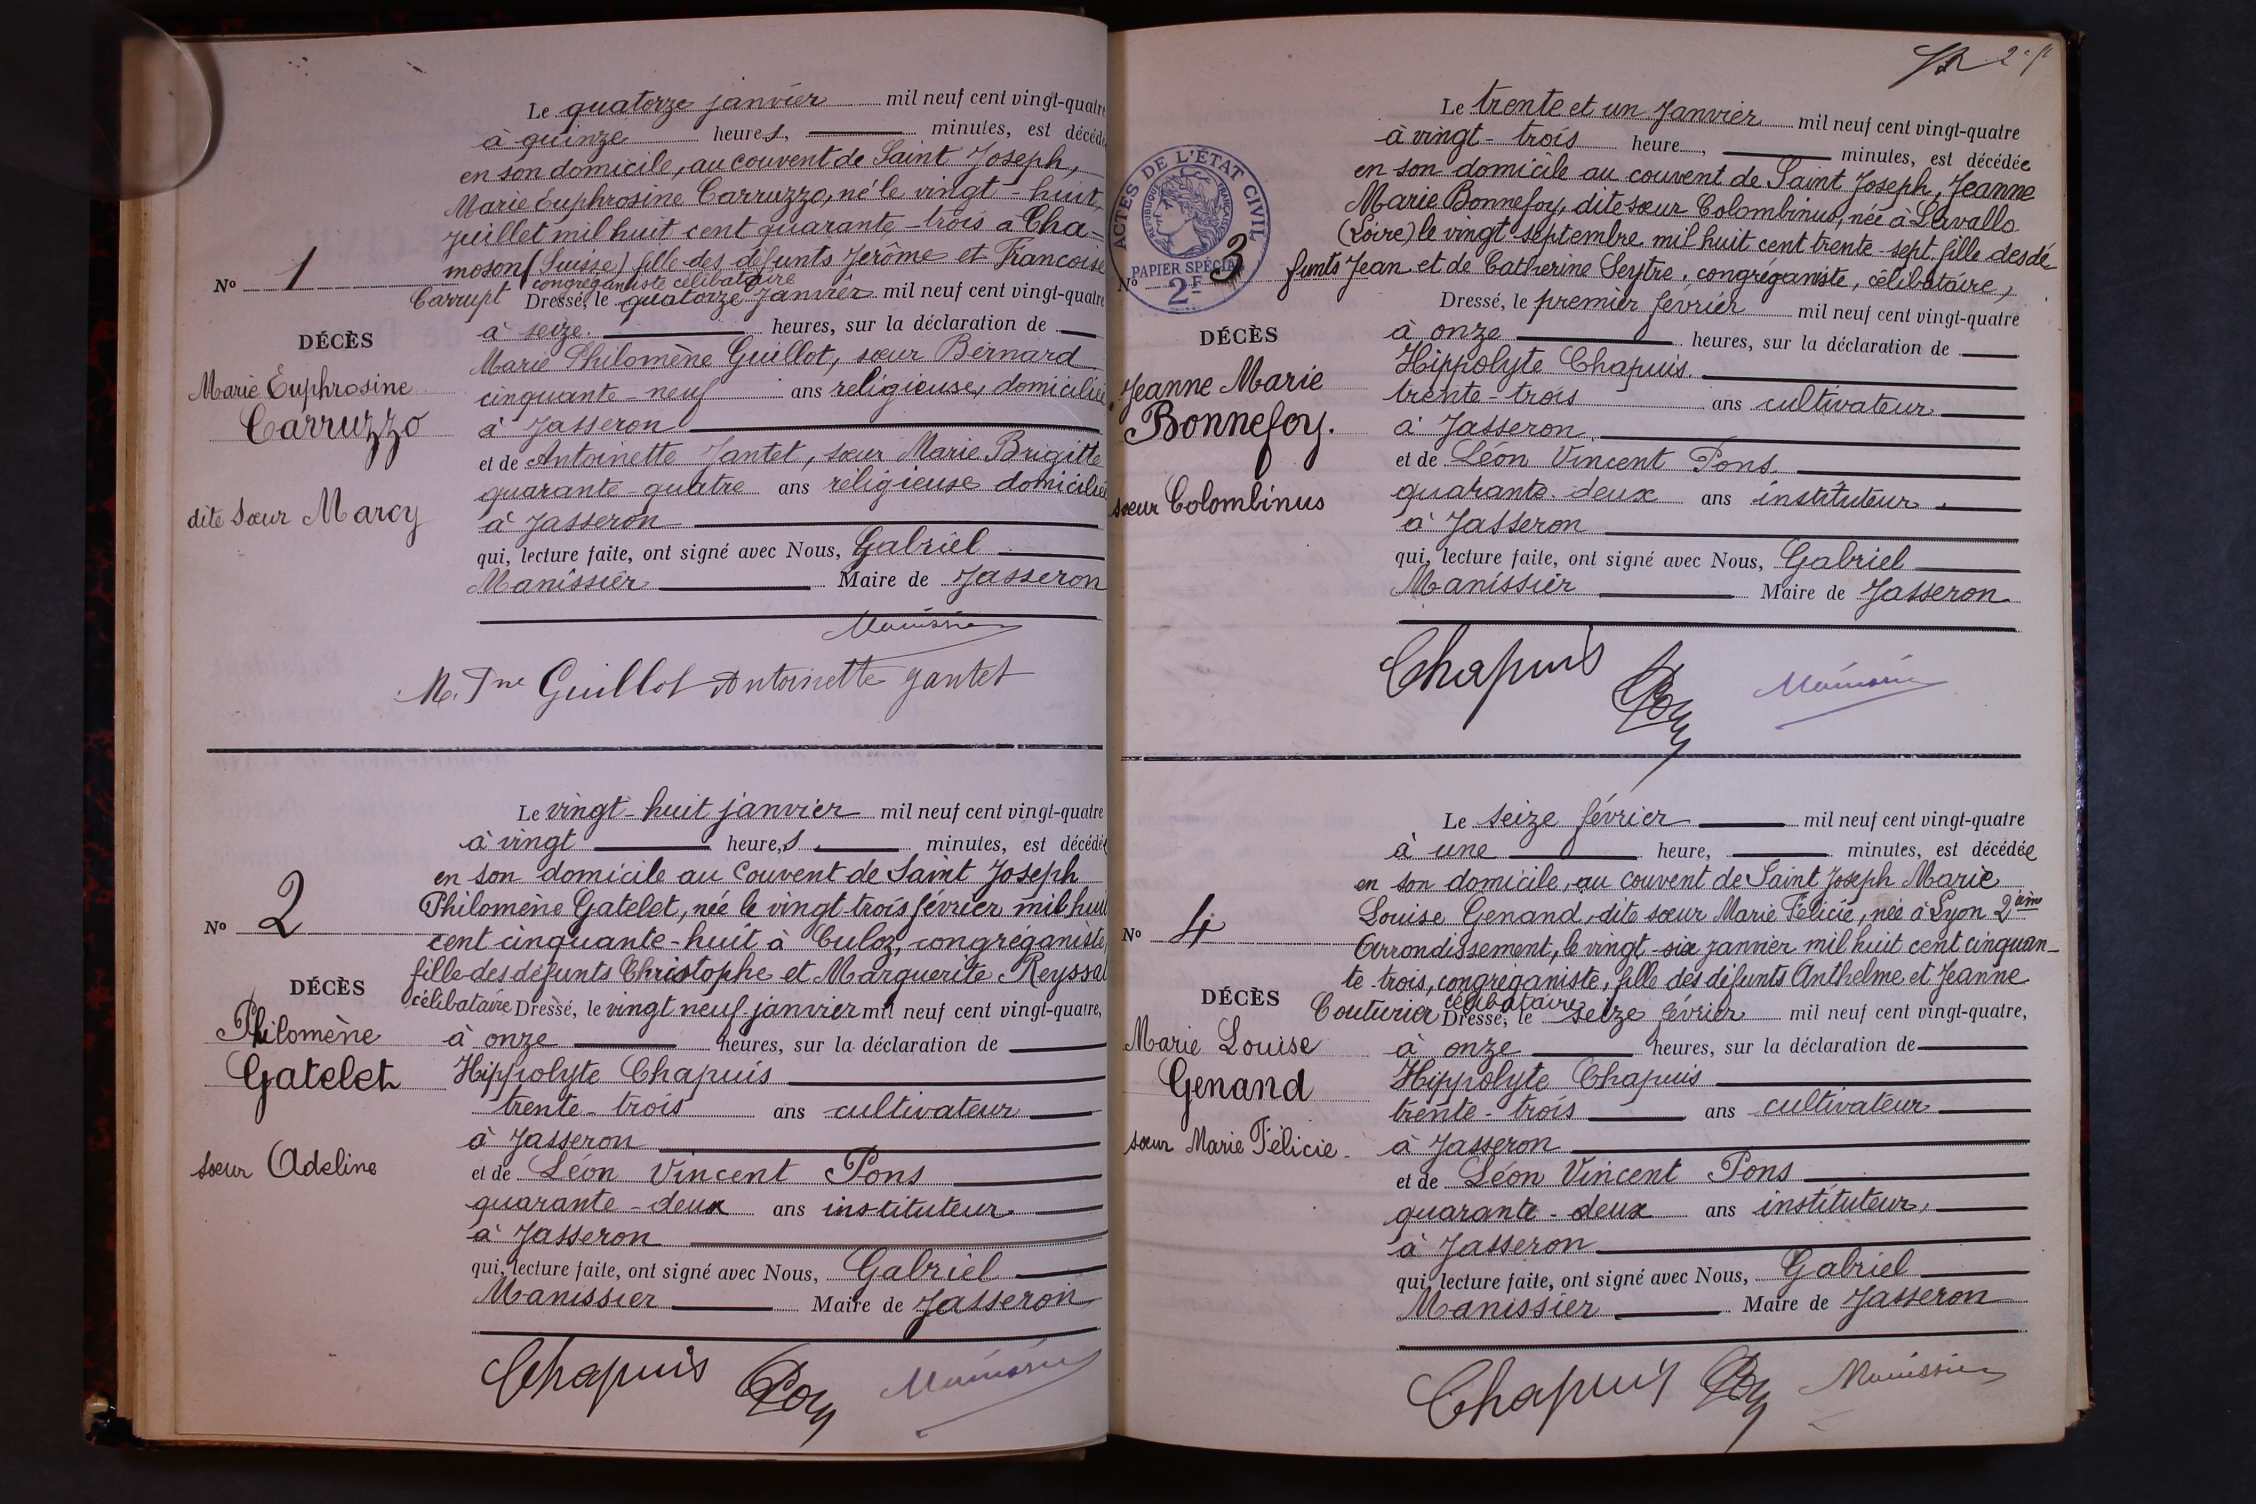 Le quatorze janvier mil neuf cent vingt-quatre
à quinze heures, minutes, est décédé
en son domicile, au couvent de Saint Joseph,
Marie Euphrosine Carruzzo, né le vingt-huit
juillet mil huit cent quarante-trois à Cha=
moson (Suisse) fille des défunts Jérôme et Françoise
Carrupt congréganiste célibataire
No 1
Dressé, le quatorze janvier mil neuf cent vingt-quatre
à seize heures, sur la déclaration de
DÉCÈS
Marie Philomène Guillot, sœur Bernard
Marie Euphrosine
cinquante-neuf ans religieuse, domiciliée
Carruzzo
à Jasseron
et de Antoinette Jantet, sœur Marie Brigitte
quarante-quatre ans religieuse domiciliée
dite sœur Marcy
à Jasseron
qui, lecture faite, ont signé avec Nous, Gabriel
Manissier Maire de Jasseron
Manissier
M. Guillot Antoinette Jantet
Le vingt-huit janvier mil neuf cent vingt-quatre
à vingt heures, minutes, est décédée
en son domicile au Couvent de Saint Joseph
Philomène Gatelet, née le vingt trois février mil huit
No 2
cent cinquante-huit à Culoz, congréganiste,
fille des défunts Christophe et Marguerite Reyssat
DÉCÈS
célibataire Dressé, le vingt neuf janvier mil neuf cent vingt-quatre,
Philomène
à onze heures, sur la déclaration de
Gatelet
Hippolyte Chapuis
trente-trois ans cultivateur
à Jasseron
sœur Adeline
et de Léon Vincent Pons
quarante-deux ans instituteur
à Jasseron
qui, lecture faite, ont signé avec Nous, Gabriel
Manissier Maire de Jasseron
Chapuis Pons Manissier
Le trente et un Janvier mil neuf cent vingt-quatre
à vingt-trois heure, minutes, est décédée
en son domicile au couvent de Saint Joseph, Jeanne
Marie Bonnefoy, dite sœur Colombinus, née à Lavalla
(Loire) le vingt septembre mil huit cent trente-sept, fille des dé-
funts Jean et de Catherine Seytre, congréganiste, célibataire,
ACTES DE L'ÉTAT CIVIL
RÉPUBLIQUE FRANÇAISE
PAPIER SPÉCIAL
2F
No 3
Dressé, le premier février mil neuf cent vingt-quatre
DÉCÈS
à onze heures, sur la déclaration de
Hippolyte Chapuis.
Jeanne Marie
trente-trois ans cultivateur
Bonnefoy.
à Jasseron
et de Léon Vincent Pons
quarante-deux ans instituteur
sœur Colombinus
à Jasseron
qui, lecture faite, ont signé avec Nous, Gabriel
Manissier Maire de Jasseron
Chapuis Pons Manissier
Le seize février mil neuf cent vingt-quatre
à une heure, minutes, est décédée
en son domicile, au couvent de Saint Joseph Marie
Louise Genand, dite sœur Marie Félicie, née à Lyon 2ème
No 4
Arrondissement, le vingt-six janvier mil huit cent cinquan-
te-trois, congréganiste, fille des défunts Anthelme et Jeanne
DÉCÈS
Couturier célibataire Dressé, le seize février mil neuf cent vingt-quatre,
Marie Louise
à onze heures, sur la déclaration de
Genand
Hippolyte Chapuis
trente-trois ans cultivateur
sœur Marie Félicie
à Jasseron
et de Léon Vincent Pons
quarante-deux ans instituteur,
à Jasseron
qui, lecture faite, ont signé avec Nous, Gabriel
Manissier Maire de Jasseron
Chapuis Pons Manissier